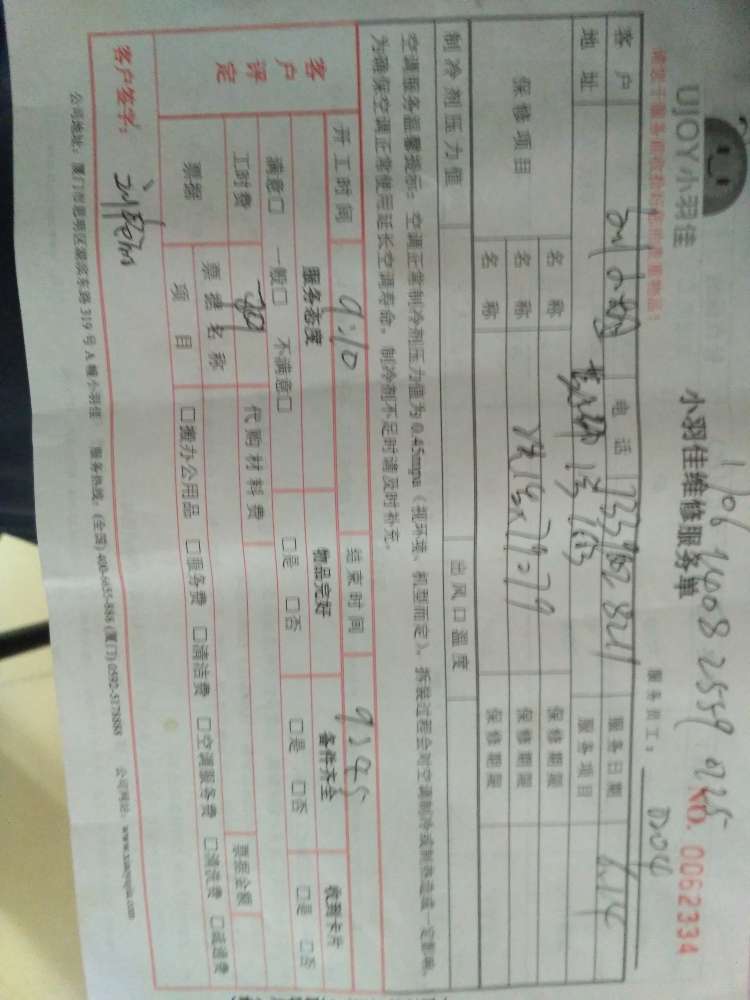 UJOY小羽佳
小羽佳维修服务单
NO. 0062334
服务员工：
客户 电话 服务日期
地址 服务项目
保修项目 名称 保修期限
名称 保修期限
名称 保修期限
制冷剂压力值 出风口温度
空调服务温馨提示：空调正常制冷剂压力值为0.45mpa（视环境、机型而定）。拆装过程会对空调制冷或制热造成一定影响，
为确保空调正常使用延长空调寿命，制冷剂不足时请及时补充。
开工时间 9:10 结束时间 9:45
客户评定 服务态度 物品完好 备件齐全 收到卡片
满意□ 一般□ 不满意□ □是 □否 □是 □否 □是 □否
工时费 代购材料费
票据 票据名称 票据金额
项目 □搬办公用品 □服务费 □清洁费 □空调服务费 □清洗费 □疏通费
客户签字：
公司地址：厦门市思明区湖滨东路319号A幢小羽佳 服务热线：(全国) 400-6655-888 (厦门) 0592-5178888 公司网站：